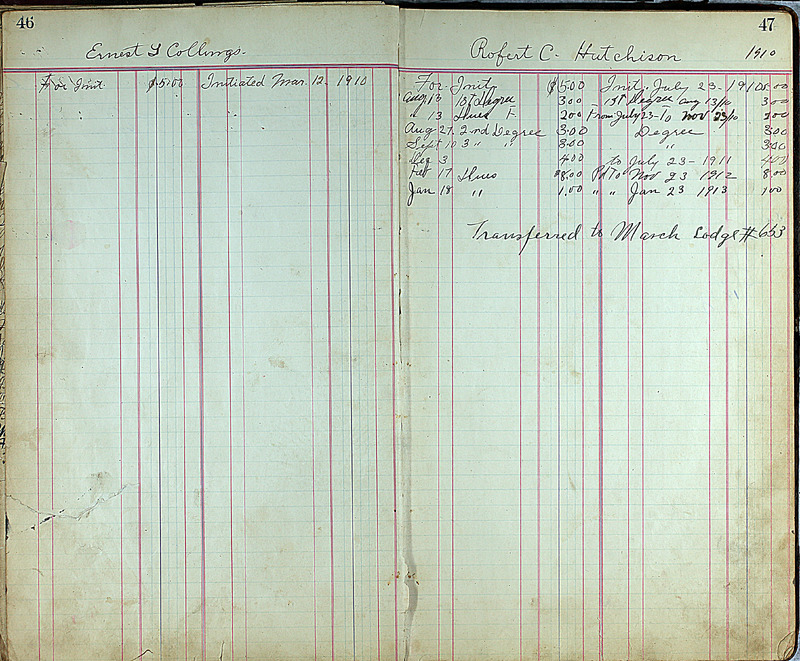 46
Ernest L Collings.
For Init $5.00 Initiated Mar. 12. 1910
47
Robert C. Hutchison 1910
For Init $5.00 Init. July 23-1910 5.00
Aug 13 1st Degree 3.00 1st Degree Aug 13/10 3.00
" 13 Dues F 2.00 From July 23-To Nov 23/10 2.00
Aug 27. 2nd Degree 3.00 Degree 3.00
Sept 10 3 " " 3.00 " 3.00
Dec 3 4.00 to July 23-1911 4.00
Feb 17 Dues $8.00 Pd To Nov 23 1912 8.00
Jan 18 " 1.00 " " Jan 23 1913 1.00
Transferred to March Lodge # 653